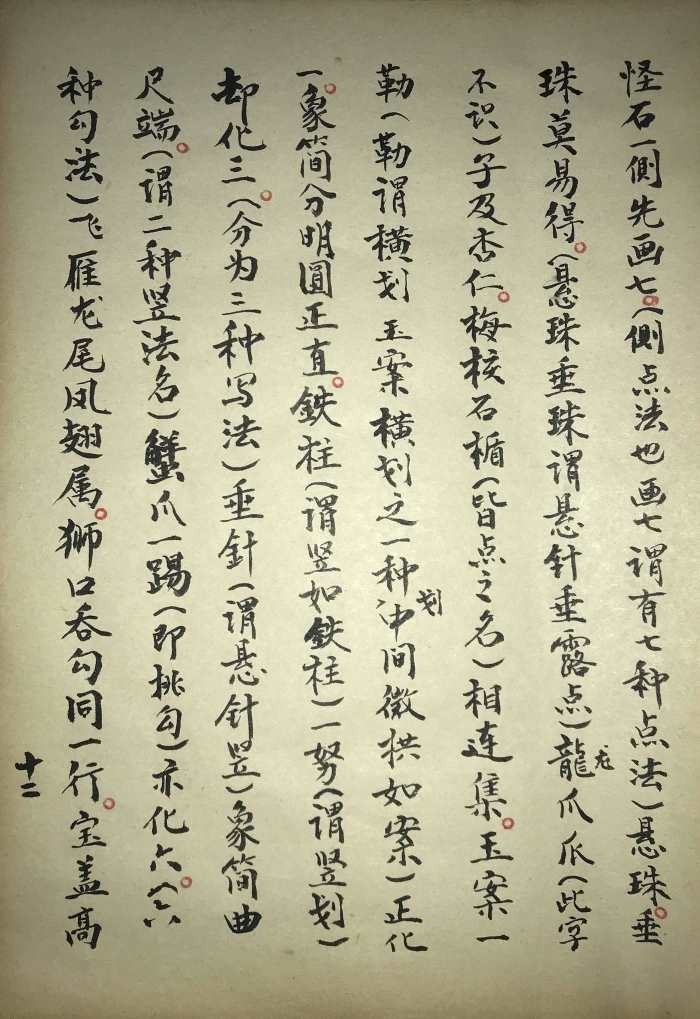 怪石一側先画七。（側点法也画七谓有七种点法）悬珠。垂
珠莫易得。（悬珠垂珠谓悬针垂露点）龍龙爪瓜（此字
不识）子及杏仁。梅核石楯（皆点之名）相连集。玉案一
勒（勒谓横划玉案横划之一种划中间微拱如案）正化
一。象简分明圓正直。鉄柱（谓竖如鉄柱）一努（谓竖划）
却化三。（分为三种写法）垂針（谓悬针竖）象简曲
尺端。（谓二种竖法名）蟹爪一踢（即挑勾）亦化六。（六
种勾法）飞雁龙尾凤翅属。狮口吞勾同一行。宝盖高
十二